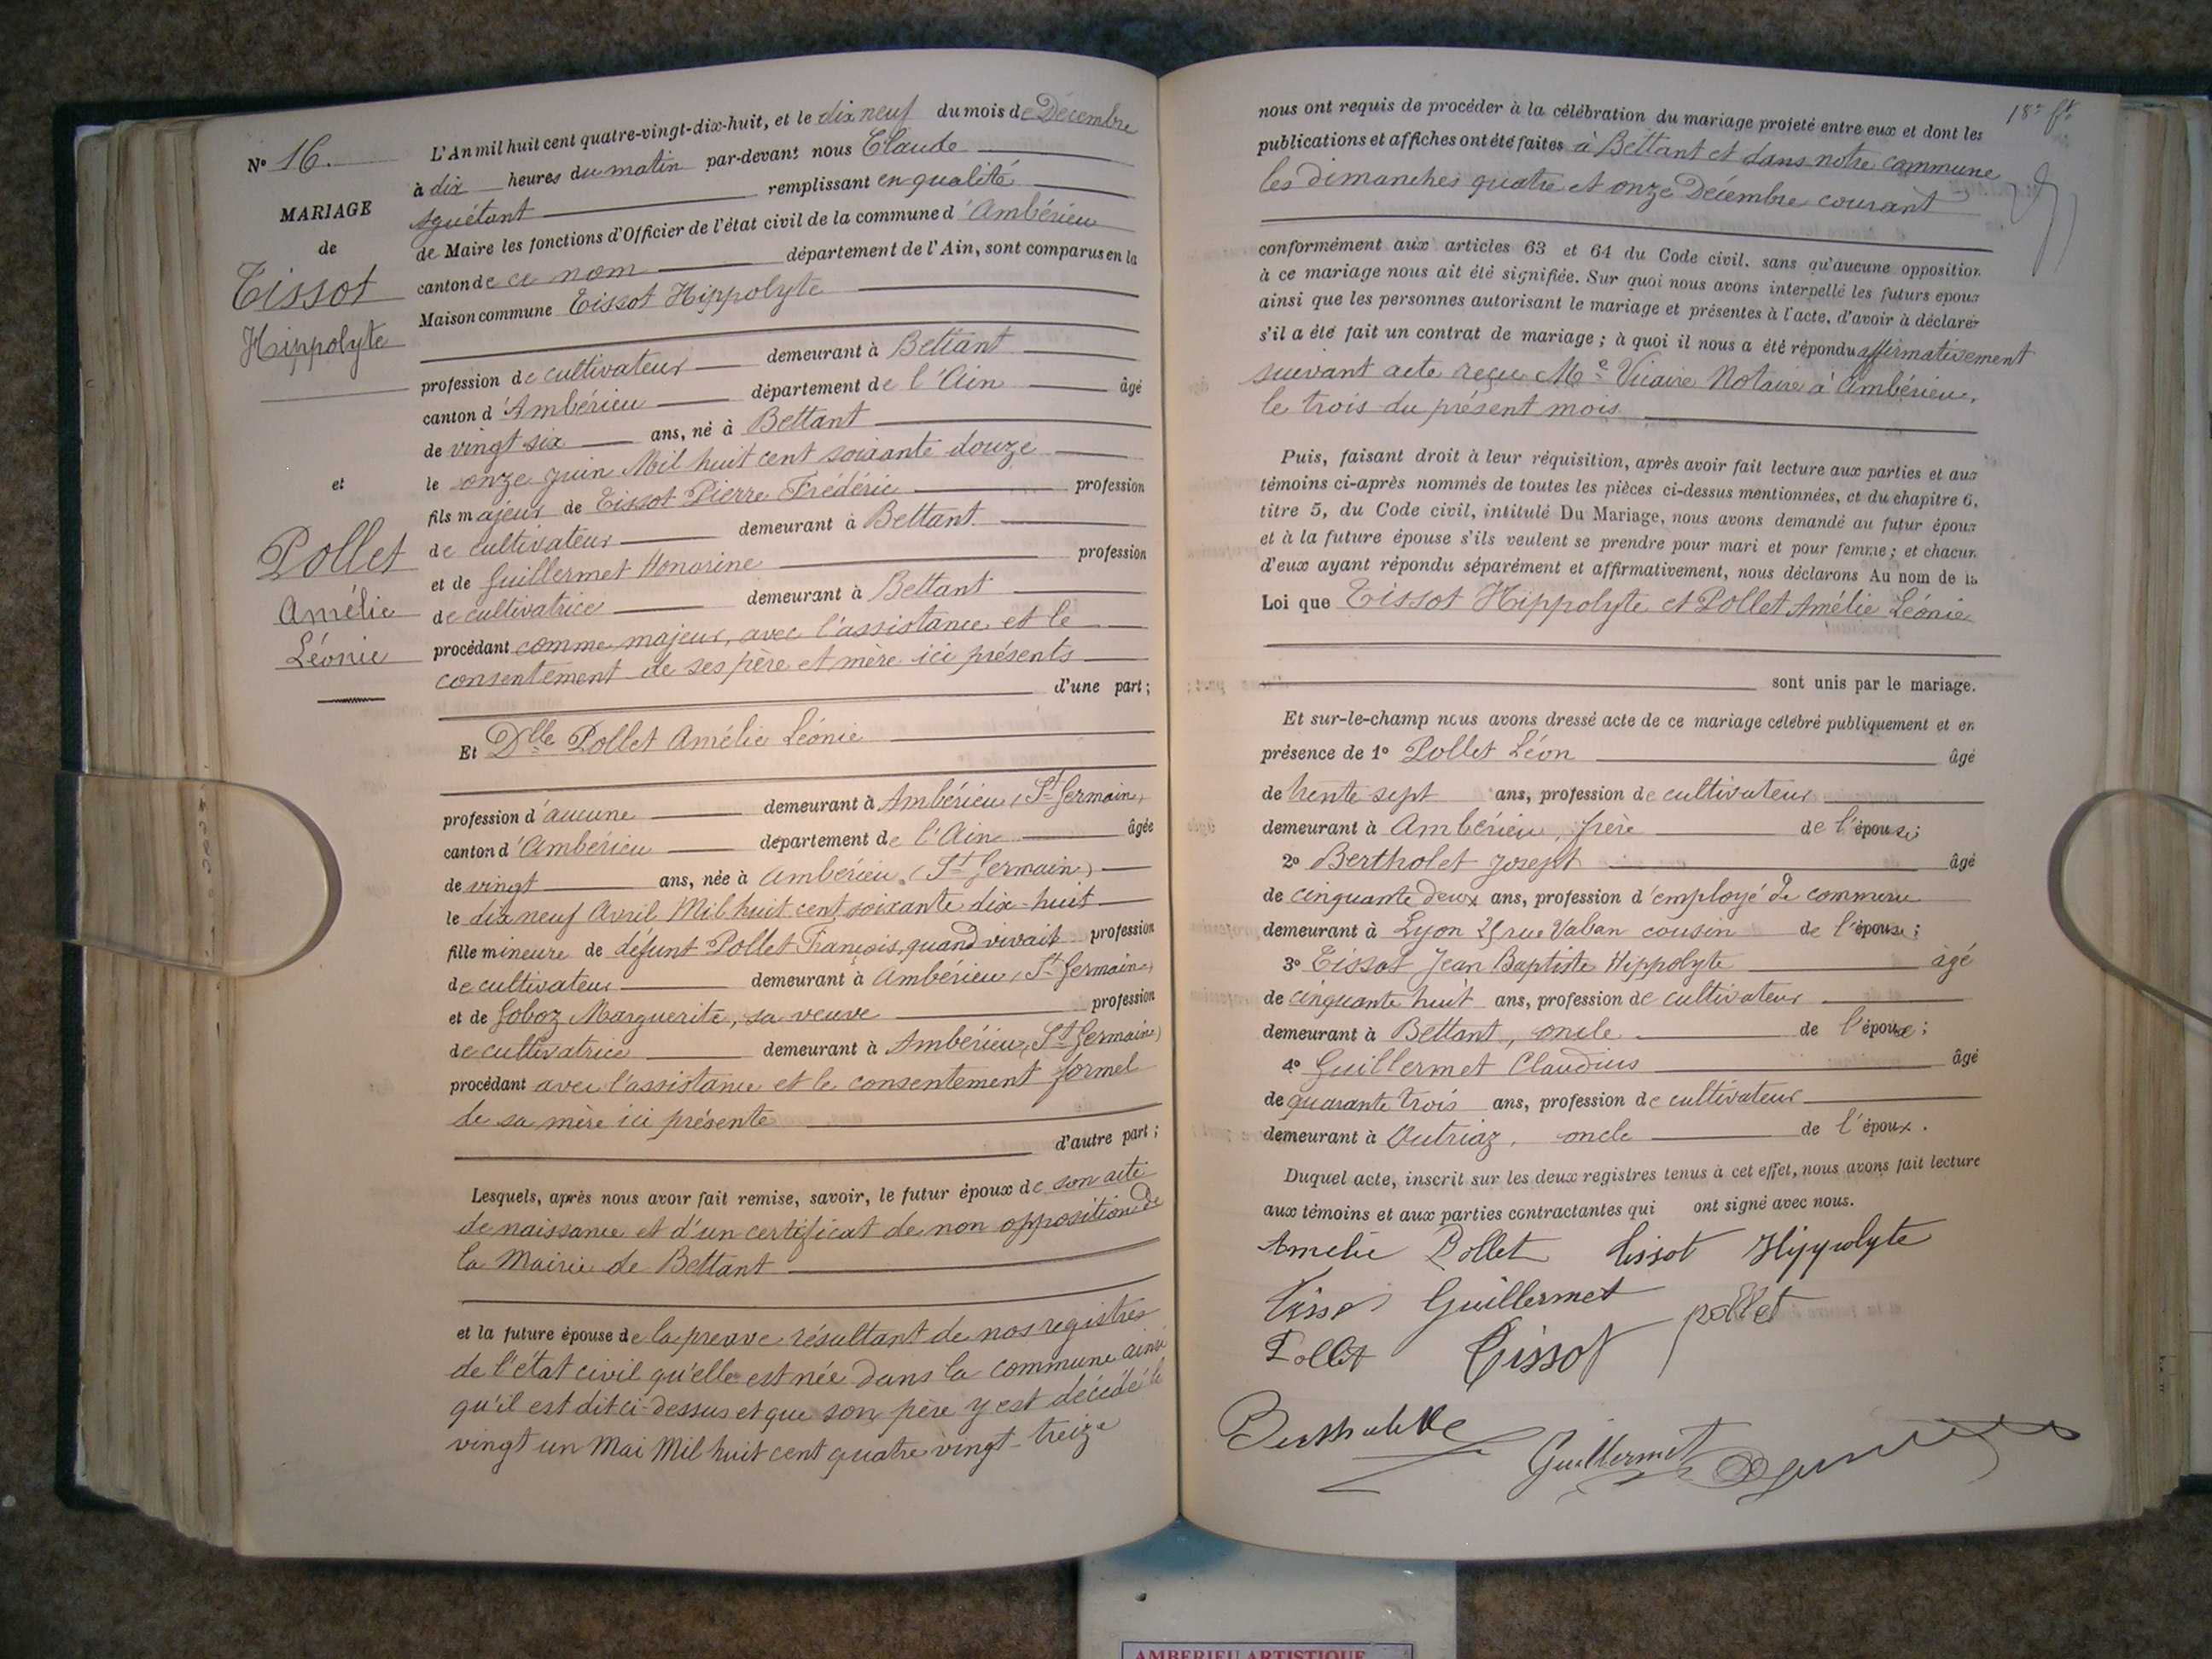 N° 16.
MARIAGE
de
Tissot
Hippolyte
et
Pollet
Amélie
Léonie
L'An mil huit cent quatre-vingt-dix-huit, et le dix neuf du mois de Décembre
à dix heures du matin par-devant nous Claude
remplissant en qualité
de Maire les fonctions d'Officier de l'état civil de la commune d'Ambérieu
canton de ce nom département de l'Ain, sont comparus en la
Maison commune Tissot Hippolyte
profession de cultivateur demeurant à Bettant
canton d'Ambérieu département de l'Ain âgé
de vingt six ans, né à Bettant
le onze juin Mil huit cent soixante douze
fils majeur de Tissot Pierre Frédéric profession
de cultivateur demeurant à Bettant
et de Guillermet Honorine profession
de cultivatrice demeurant à Bettant
procédant comme majeur, avec l'assistance et le
consentement de ses père et mère ici présents
d'une part;
Et Dlle Pollet Amélie Léonie
profession d'aucune demeurant à Ambérieu (St Germain)
canton d'Ambérieu département de l'Ain âgée
de vingt ans, née à Ambérieu (St Germain)
le dix neuf Avril Mil huit cent soixante dix-huit
fille mineure de défunt Pollet François, quand vivait profession
de cultivateur demeurant à Ambérieu (St Germain)
et de Goboz Marguerite, sa veuve profession
de cultivatrice demeurant à Ambérieu (St Germain)
procédant avec l'assistance et le consentement formel
de sa mère ici présente
d'autre part;
Lesquels, après nous avoir fait remise, savoir, le futur époux de son acte
de naissance et d'un certificat de non opposition de
la Mairie de Bettant
et la future épouse de la preuve résultant de nos registres
de l'état civil qu'elle est née dans la commune ainsi
qu'il est dit ci-dessus et que son père y est décédé le
vingt un Mai Mil huit cent quatre vingt-treize
nous ont requis de procéder à la célébration du mariage projeté entre eux et dont les
publications et affiches ont été faites à Bettant et dans notre commune
les dimanches quatre et onze Décembre courant
conformément aux articles 63 et 64 du Code civil. sans qu'aucune opposition
à ce mariage nous ait été signifiée. Sur quoi nous avons interpellé les futurs epoux
ainsi que les personnes autorisant le mariage et présentes à l'acte, d'avoir à déclarer
s'il a été fait un contrat de mariage; à quoi il nous a été répondu affirmativement
suivant acte reçu Me Vicaire Notaire à Ambérieu,
le trois du présent mois
Puis, faisant droit à leur réquisition, après avoir fait lecture aux parties et aux
témoins ci-après nommés de toutes les pièces ci-dessus mentionnées, et du chapitre 6,
titre 5, du Code civil, intitulé Du Mariage, nous avons demandé au futur époux
et à la future épouse s'ils veulent se prendre pour mari et pour femme; et chacun
d'eux ayant répondu séparément et affirmativement, nous déclarons Au nom de la
Loi que Tissot Hippolyte et Pollet Amélie Léonie
sont unis par le mariage.
Et sur-le-champ nous avons dressé acte de ce mariage célébré publiquement et en
présence de 1° Pollet Léon âgé
de trente sept ans, profession de cultivateur
demeurant à Ambérieu, frère de l'épouse;
2° Bertholet Joseph âgé
de cinquante deux ans, profession d'employé de commerce
demeurant à Lyon rue Vauban cousin de l'épouse;
3° Tissot Jean Baptiste Hippolyte âgé
de cinquante huit ans, profession de cultivateur
demeurant à Bettant, oncle de l'époux;
4° Guillermet Claudius âgé
de quarante trois ans, profession de cultivateur
demeurant à Outriaz, oncle de l'époux.
Duquel acte, inscrit sur les deux registres tenus à cet effet, nous avons fait lecture
aux témoins et aux parties contractantes qui ont signé avec nous.
Amélie Pollet Tissot Hippolyte
Tissot Guillermet pollet
Pollet Tissot
Guillermet
AMBERIEU ARTISTIQUE